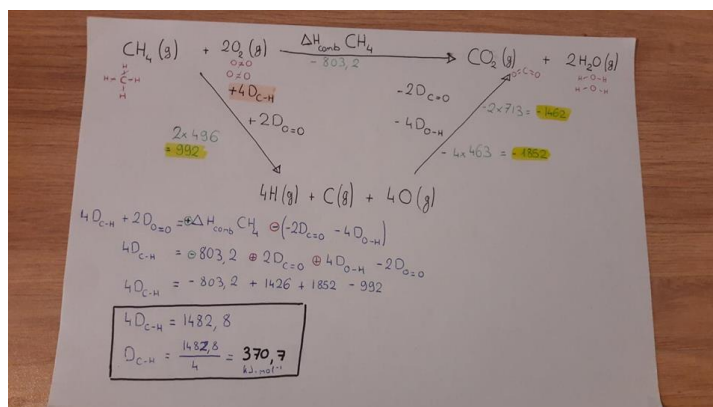 CH₄(g) + 2O₂(g) ΔH_comb CH₄ CO₂(g) + 2H₂O(g)
- 803,2
H
H-C-H
H
O=O
O=O
O=C=O
H-O-H
H-O-H
+4D_C-H
+2D_O=O
2×496
= 992
-2D_C=O
-4D_O-H
-2×713 = -1462
-4×463 = -1852
4H(g) + C(g) + 4O(g)
4D_C-H + 2D_O=O = ⊕ΔH_comb CH₄ ⊖(-2D_C=O - 4D_O-H)
4D_C-H = ⊖803,2 ⊕ 2D_C=O ⊕ 4D_O-H - 2D_O=O
4D_C-H = - 803,2 + 1426 + 1852 - 992
4D_C-H = 1482,8
D_C-H = 1482,8/4 = 370,7
kJ·mol⁻¹